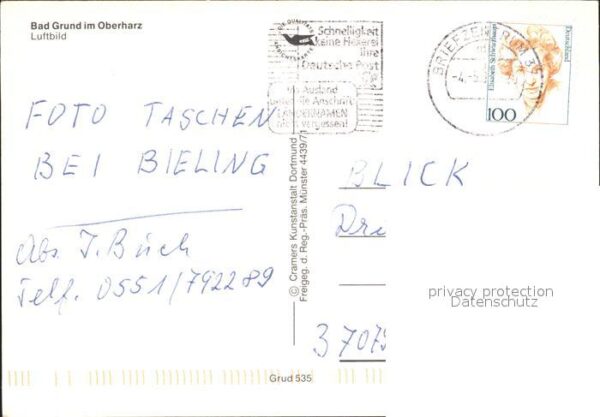 Bad Grund im Oberharz
Luftbild
DIE QUALITÄTS
ANSICHTSKARTE
Schnelligkeit
keine Hexerei
Ihre
Deutsche Post
Im Ausland
Anschrift
LÄNDERNAMEN
nicht vergessen!
BRIEFZENTRUM 3
Deutschland
Elisabeth Schwarzhaupt
100
FOTO TASCHEN
BEI BIELING
Abs. J. Buch
Telf. 0551/792289
© Cramers Kunstanstalt Dortmund
Freigeg. d. Reg.-Präs. Münster 4439/71
BLICK
privacy protection
Datenschutz
3707
Grud 535